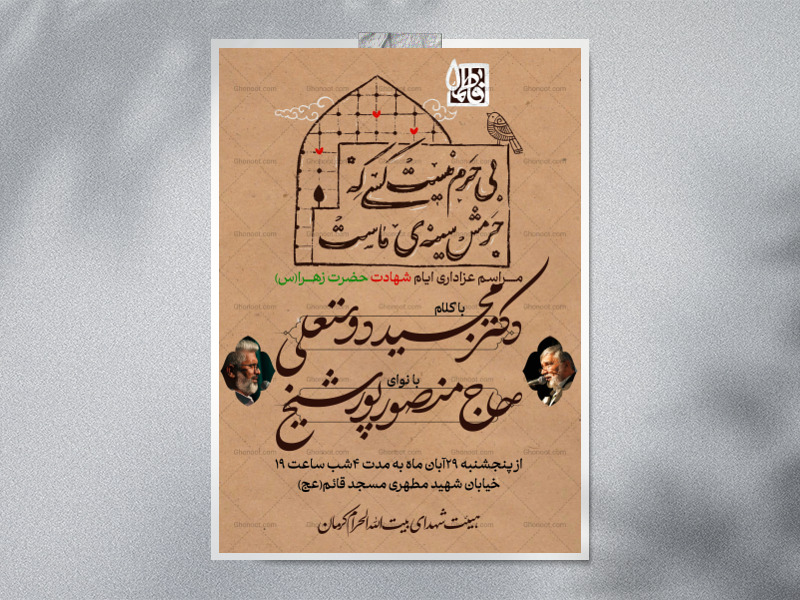 فاطمة
بی حرم نیست کسی که
حرمش سینه‌ی ماست
مراسم عزاداری ایام شهادت حضرت زهرا(س)
با کلام
دکتر مجید دوستعلی
با نوای
حاج منصور پورشیخ
از پنجشنبه ۲۹آبان ماه به مدت ۴شب ساعت ۱۹
خیابان شهید مطهری مسجد قائم(عج)
هیئت شهدای بیت الله الحرام کرمان
Ghonoot.com